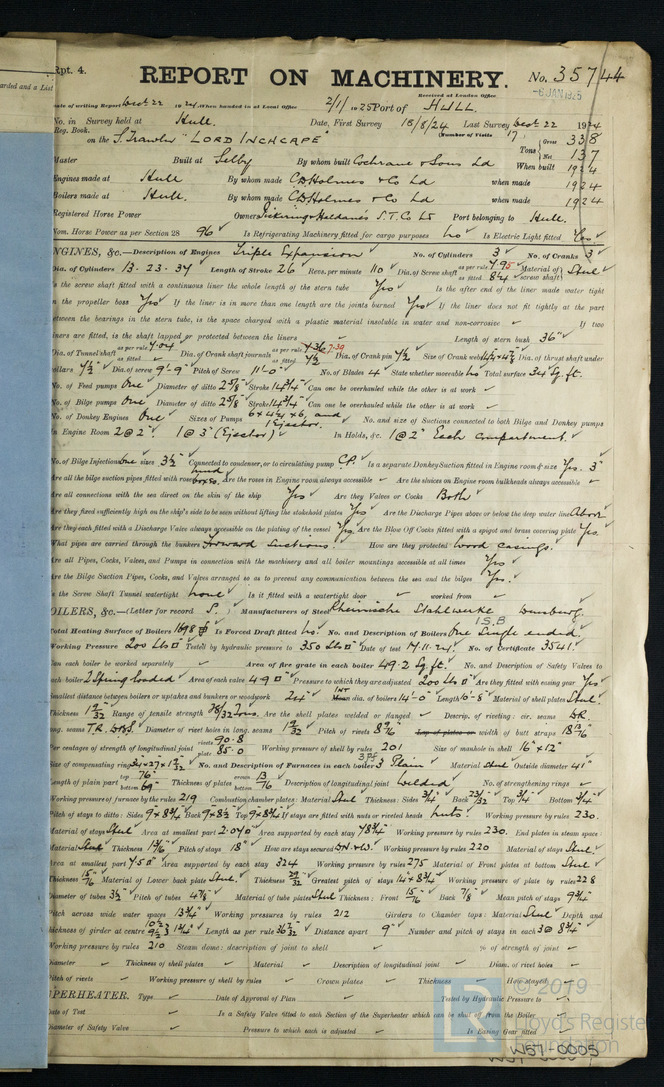 arded and a List
Rpt. 4.
REPORT ON MACHINERY. No. 35744
Received at London Office -6 JAN 1925
Date of writing Report Decr 22 1924 When handed in at Local Office 2/1/1925 Port of HULL
No. in Survey held at Hull. Date, First Survey 18/8/24 Last Survey Decr 22 1924
Reg. Book. (Number of Visits 17)
on the S. Trawler "LORD INCHCAPE" Tons Gross 338 Net 137
Master Built at Selby By whom built Cochrane & Sons Ld When built 1924
Engines made at Hull By whom made C.D. Holmes & Co Ld when made 1924
Boilers made at Hull. By whom made C.D. Holmes & Co Ld when made 1924
Registered Horse Power Owners Pickering & Haldane's S.T. Co Ld Port belonging to Hull.
Nom. Horse Power as per Section 28 96 Is Refrigerating Machinery fitted for cargo purposes No Is Electric Light fitted Yes.
ENGINES, &c.—Description of Engines Triple Expansion No. of Cylinders 3 No. of Cranks 3
Dia. of Cylinders 13. 23. 37 Length of Stroke 26 Revs. per minute 110 Dia. of Screw shaft as per rule 7.95 as fitted 8 1/4 Material of screw shaft Steel
Is the screw shaft fitted with a continuous liner the whole length of the stern tube Yes Is the after end of the liner made water tight
in the propeller boss Yes If the liner is in more than one length are the joints burned Yes If the liner does not fit tightly at the part
between the bearings in the stern tube, is the space charged with a plastic material insoluble in water and non-corrosive If two
liners are fitted, is the shaft lapped or protected between the liners Length of stern bush 36"
Dia. of Tunnel shaft as per rule 7.04 as fitted Dia. of Crank shaft journals as per rule 7.36 7.39 as fitted 7 1/2 Dia. of Crank pin 7 1/2 Size of Crank webs Dia. of thrust shaft under
collars 7 1/2 Dia. of screw 9'-9" Pitch of Screw 11'-0" No. of Blades 4 State whether moveable No Total surface 34 Sq. ft.
No. of Feed pumps One Diameter of ditto 2 5/8 Stroke 14 3/4 Can one be overhauled while the other is at work
No. of Bilge pumps One Diameter of ditto 2 5/8 Stroke 14 3/4 Can one be overhauled while the other is at work
No. of Donkey Engines One Sizes of Pumps 6 x 4 1/4 x 6, and 1 Ejector. No. and size of Suctions connected to both Bilge and Donkey pumps
In Engine Room 2 @ 2". 1 @ 3" (Ejector) In Holds, &c. 1 @ 2" Each Compartment.
No. of Bilge Injections One sizes 3 1/2 Connected to condenser, or to circulating pump C.P. Is a separate Donkey Suction fitted in Engine room & size Yes. 3"
Are all the bilge suction pipes fitted with roses Are the roses in Engine room always accessible Are the sluices on Engine room bulkheads always accessible
Are all connections with the sea direct on the skin of the ship Yes Are they Valves or Cocks Both
Are they fixed sufficiently high on the ship's side to be seen without lifting the stokehold plates Yes Are the Discharge Pipes above or below the deep water line Above
Are they each fitted with a Discharge Valve always accessible on the plating of the vessel Yes. Are the Blow Off Cocks fitted with a spigot and brass covering plate Yes.
What pipes are carried through the bunkers Forward Suctions. How are they protected Wood casings.
Are all Pipes, Cocks, Valves, and Pumps in connection with the machinery and all boiler mountings accessible at all times Yes
Are the Bilge Suction Pipes, Cocks, and Valves arranged so as to prevent any communication between the sea and the bilges Yes.
Is the Screw Shaft Tunnel watertight none Is it fitted with a watertight door worked from
BOILERS, &c.—(Letter for record S.) Manufacturers of Steel Rheinische Stahlwerke Duisburg.
Total Heating Surface of Boilers 1698 Is Forced Draft fitted No. No. and Description of Boilers One Single ended. 1.S.B
Working Pressure 200 Lbs Tested by hydraulic pressure to 350 Lbs Date of test 17.11.24 No. of Certificate 3541.
Can each boiler be worked separately Area of fire grate in each boiler 49.2 Sq. ft. No. and Description of Safety Valves to
each boiler 2 Spring loaded Area of each valve 4.9 Pressure to which they are adjusted 200 Lbs Are they fitted with easing gear Yes
Smallest distance between boilers or uptakes and bunkers or woodwork 24" INT dia. of boilers 14'-0" Length 10'-8" Material of shell plates Steel.
Thickness 1 9/32 Range of tensile strength 28/32 Tons. Are the shell plates welded or flanged Descrip. of riveting: cir. seams D.R.
long. seams T.R. D.B.S. Diameter of rivet holes in long. seams 1 9/32 Pitch of rivets 8 9/16 Lap of plates or width of butt straps 18 13/16
Per centages of strength of longitudinal joint rivets 90.8 plate 85.0 Working pressure of shell by rules 201 Size of manhole in shell 16" x 12"
Size of compensating ring 34 x 27 x 1 9/32 No. and Description of Furnaces in each boiler 3 Plain Material Steel Outside diameter 41"
Length of plain part top 76" bottom 69" Thickness of plates crown bottom 13/16 Description of longitudinal joint Welded No. of strengthening rings
Working pressure of furnace by the rules 219 Combustion chamber plates: Material Steel Thickness: Sides 3/4 Back 23/32 Top 3/4 Bottom 3/4
Pitch of stays to ditto: Sides 9 x 8 3/4 Back 9 x 8 1/2 Top 9 x 8 3/4 If stays are fitted with nuts or riveted heads Nuts. Working pressure by rules 230.
Material of stays Steel Area at smallest part 2.07 Area supported by each stay 78 3/4 Working pressure by rules 230. End plates in steam space:
Material Steel Thickness 1 3/16 Pitch of stays 18" How are stays secured D.N. & W. Working pressure by rules 220 Material of stays Steel
Area at smallest part 7.5 Area supported by each stay 324 Working pressure by rules 275 Material of Front plates at bottom Steel
Thickness 15/16 Material of Lower back plate Steel. Thickness 29/32 Greatest pitch of stays 14 x 8 3/4 Working pressure of plate by rules 228
Diameter of tubes 3 1/2 Pitch of tubes 4 7/8 Material of tube plates Steel Thickness: Front 15/16 Back 7/8 Mean pitch of stays 9 3/4
Pitch across wide water spaces 13 3/4 Working pressures by rules 212 Girders to Chamber tops: Material Steel Depth and
thickness of girder at centre Length as per rule Distance apart 9" Number and pitch of stays in each 3 @ 8 3/4
Working pressure by rules 210 Steam dome: description of joint to shell % of strength of joint
Diameter Thickness of shell plates Material Description of longitudinal joint Diam. of rivet holes
Pitch of rivets Working pressure of shell by rules Crown plates Thickness How stayed
SUPERHEATER. Type Date of Approval of Plan Tested by Hydraulic Pressure to
Date of Test Is a Safety Valve fitted to each Section of the Superheater which can be shut off from the Boiler
Diameter of Safety Valve Pressure to which each is adjusted Is Easing Gear fitted
© 2019
Lloyd's Register
Foundation
W57-0005